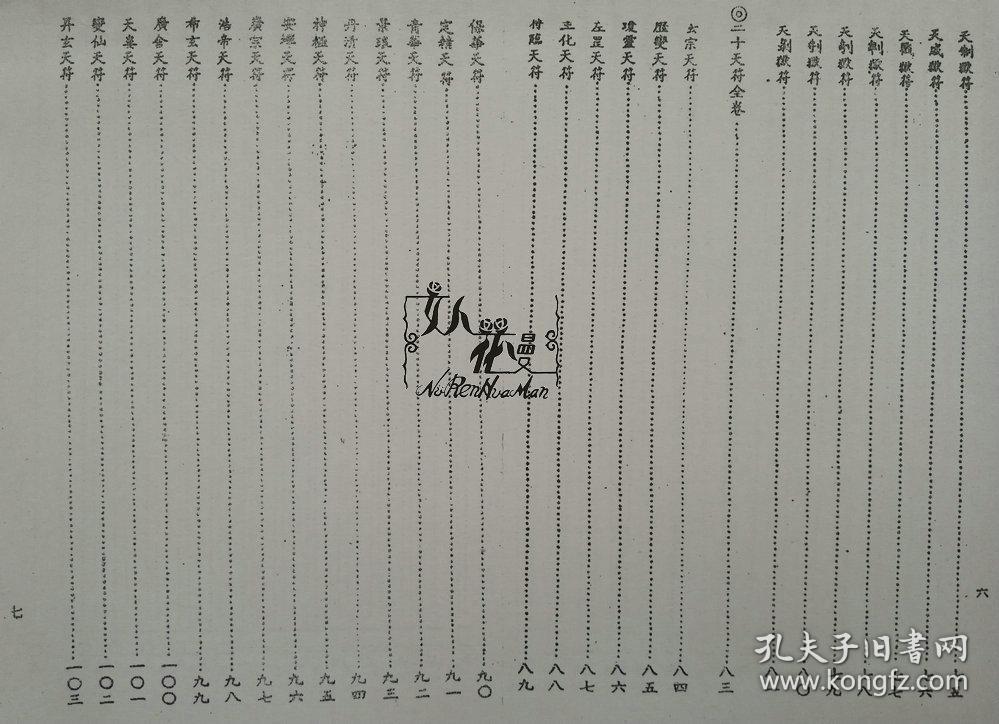 天制獄符
天威獄符
天獄符
天制獄符 八
天制獄符 九
天制獄符 八〇
天剥獄符
◎二十天符全卷 八三
玄宗天符 八四
歷變天符 八五
瓊靈天符 八六
左罡天符 八七
玉化天符 八八
付臨天符 八九
六
保華天符 九〇
定精天符 九一
青華天符 九二
景琅天符 九三
丹清天符 九四
神極天符 九五
安天符 九六
廣宗天符 九七
浩帝天符 九八
希玄天符 九九
廣舍天符 一〇〇
天婁天符 一〇一
變仙天符 一〇二
昇玄天符 一〇三
七
女人花曼
NuRenHuaMan
孔夫子旧書网
www.kongfz.com